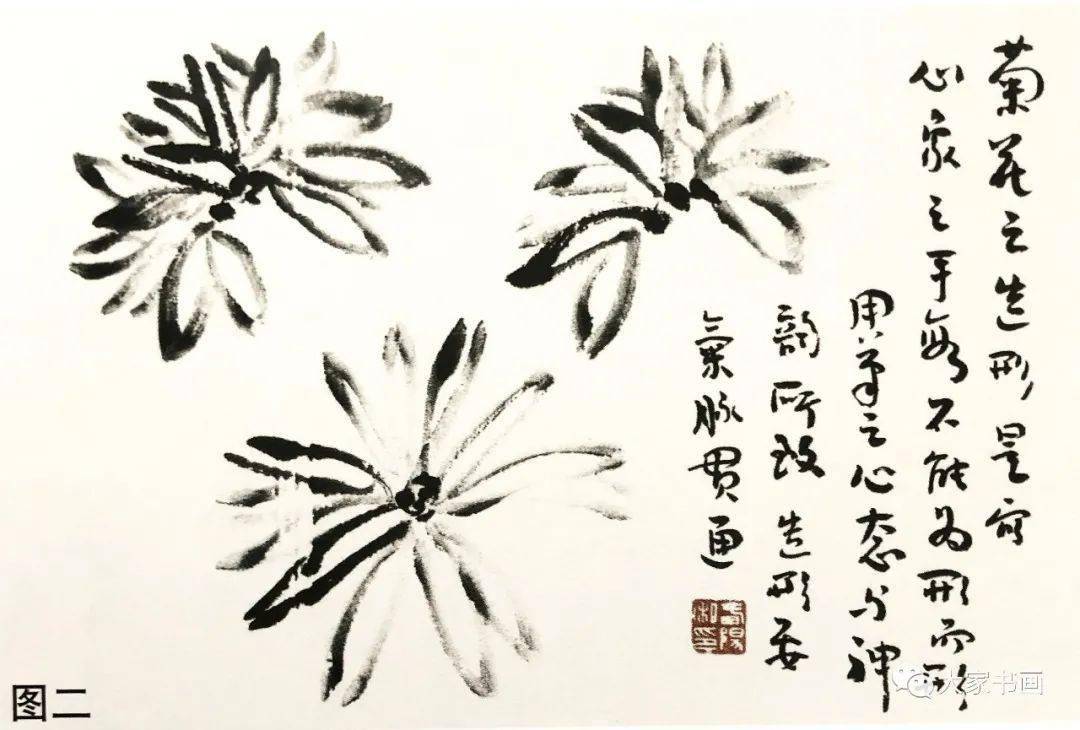 菊花之造形是写
心家之手段不能为形而形
用笔之心态与神
韵所致 造形要
氣脉貫通
大家书画
图二